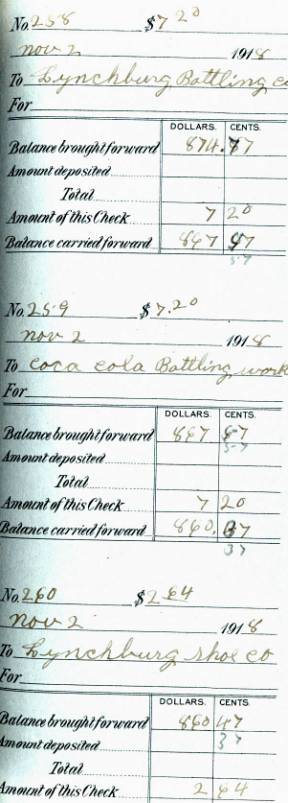 No. 258 $7 20
nov 2 1918
To Lynchburg Bottling co
For
DOLLARS. CENTS.
Balance brought forward 874.77
Amount deposited
Total
Amount of this Check 7 20
Balance carried forward 867 57
57
No. 259 $7.20
nov 2 1918
To Coca Cola Bottling work
For
DOLLARS. CENTS.
Balance brought forward 867 57
57
Amount deposited
Total
Amount of this Check 7 20
Balance carried forward 860. 37
37
No. 260 $2 64
nov 2 1918
To Lynchburg shoe co
For
DOLLARS. CENTS.
Balance brought forward 860 47
Amount deposited 37
Total
Amount of this Check 2 64